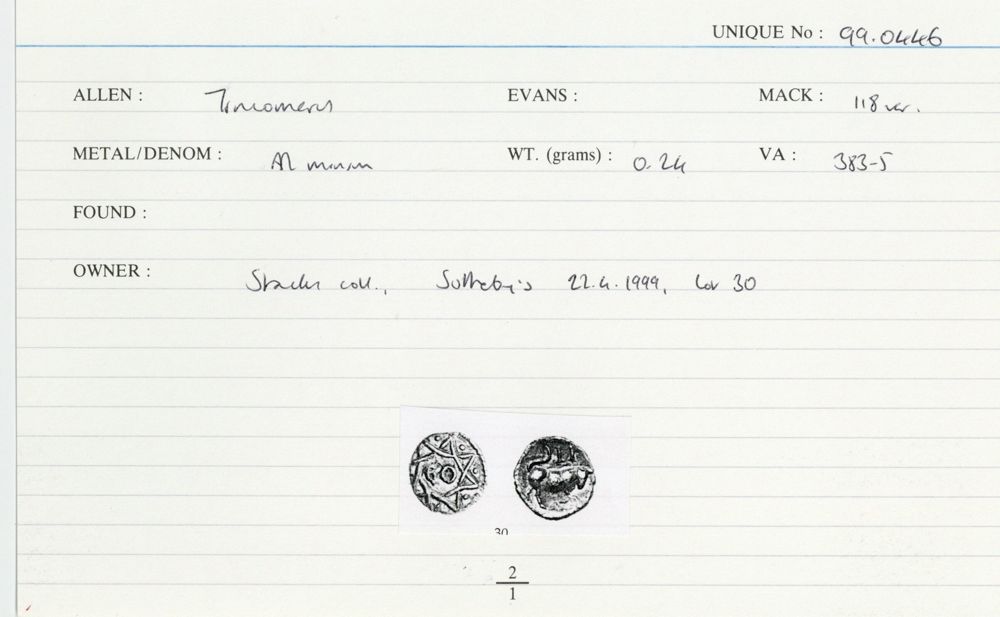 UNIQUE No : 99.0446
ALLEN : EVANS : MACK : 118 var.
METAL/DENOM : AR minim WT. (grams) : 0.24 VA : 383-5
FOUND :
OWNER : coll., Sotheby's 22.4.1999, lot 30
30
2
1